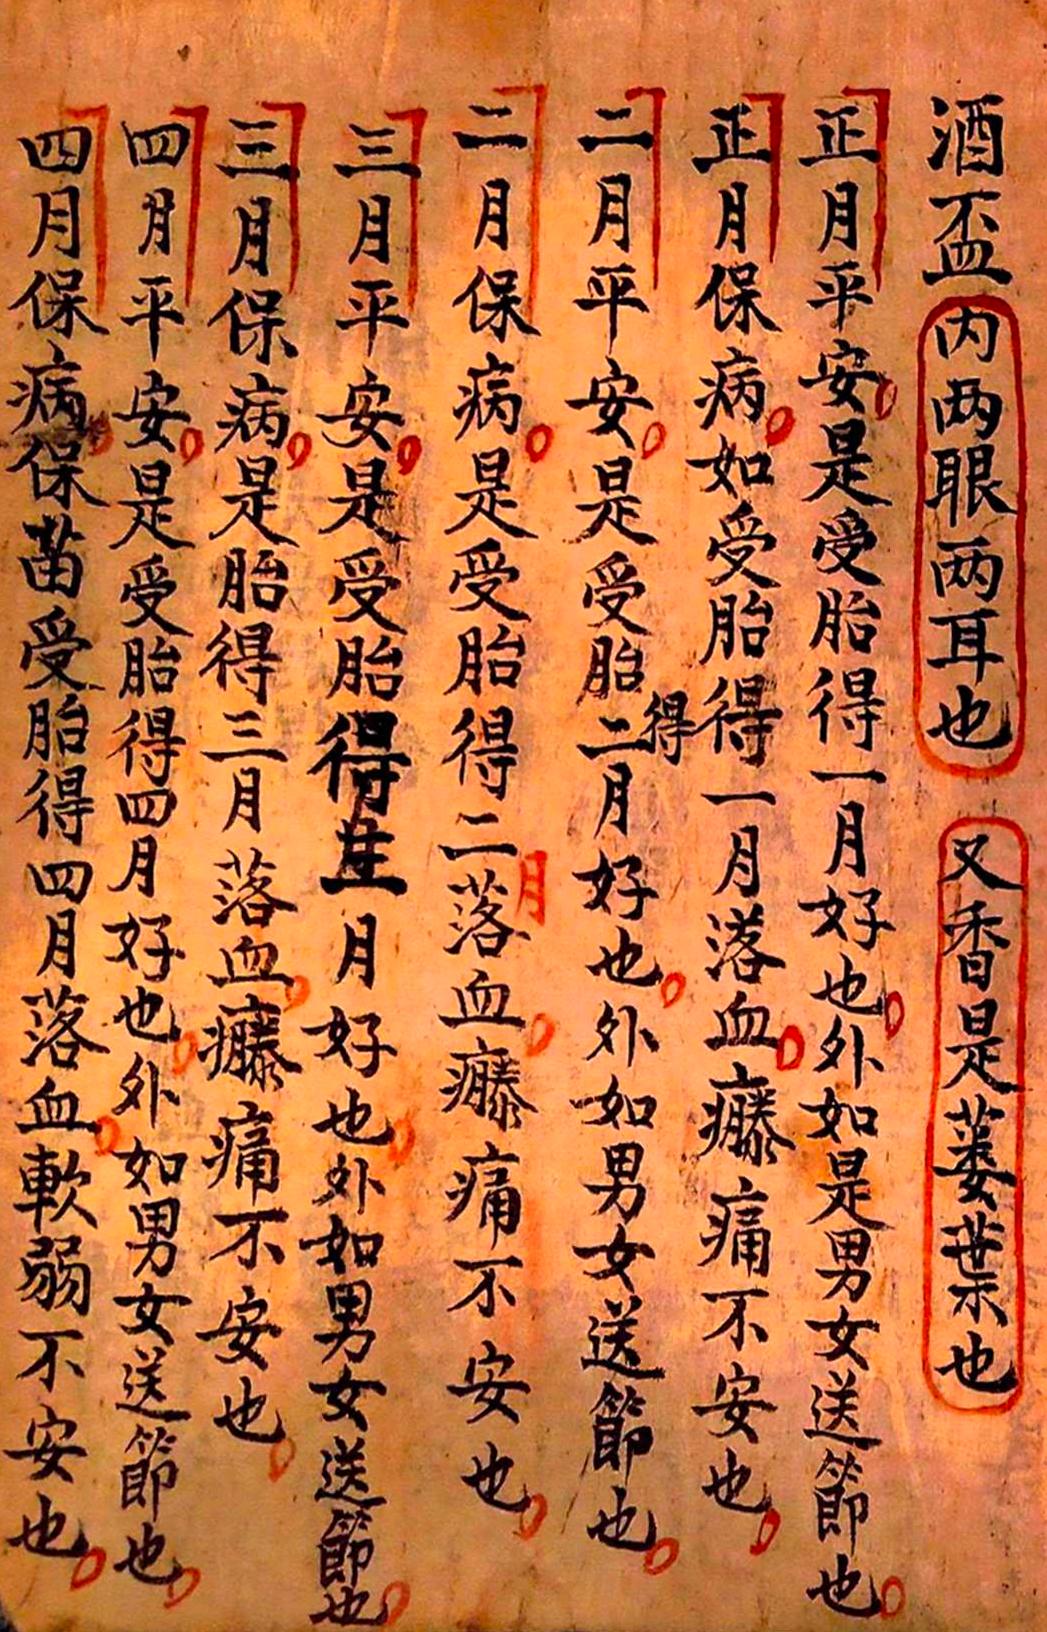 酒盃内两眼两耳也又香是蒌葉也
正月平安是受胎得一月好也外如是男女送節也
正月保病如受胎得一月落血癊痛不安也
二月平安是受胎得二月好也外如男女送節也
二月保病是受胎得二月落血癊痛不安也
三月平安是受胎得三月好也外如男女送節也
三月保病是胎得三月落血癊痛不安也
四月平安是受胎得四月好也外如男女送節也
四月保病保苗受胎得四月落血軟弱不安也